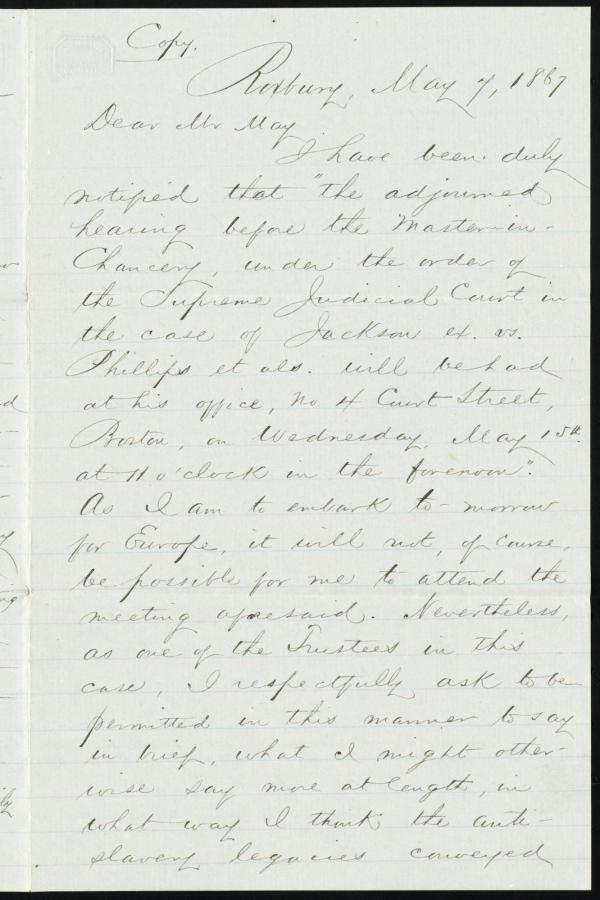 Copy.
Roxbury, May 7, 1867
Dear Mr May
I have been duly
notified that "the adjourned
hearing before the Master-in-
Chancery, under the order of
the Supreme Judicial Court in
the case of Jackson ex. vs.
Phillips et als. will be had
at his office, No 4 Court Street,
Boston, on Wednesday, May 15th.
at 11 o'clock in the forenoon".
As I am to embark to-morrow
for Europe, it will not, of course,
be possible for me to attend the
meeting aforesaid. Nevertheless,
as one of the Trustees in this
case, I respectfully ask to be
permitted in this manner to say
in brief, what I might other-
wise say more at length, in
what way I think the anti-
slavery legacies conveyed